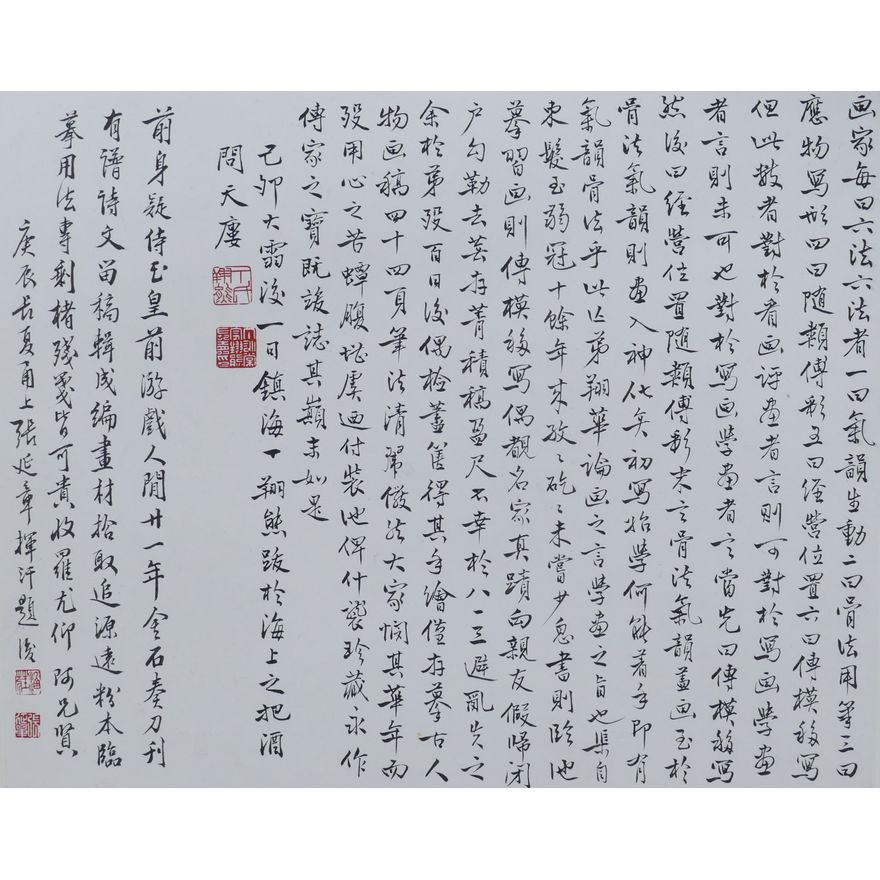 画家每曰六法六法者一曰氣韻生動二曰骨法用筆三曰
應物写形四曰随類傅彩五曰经營位置六曰傳模移写
但此數者對於看画評畫者言則可對於写画學畫
者言則未可也對於写画學畫者言當先曰傳模移写
然後曰经營位置随類傅彩末言骨法氣韻蓋画至於
骨法氣韻則畫入神化矣初写始學何能着手即有
氣韻骨法乎此亡弟翔華論画之言學畫之旨也渠自
束髮至弱冠十餘年来孜々矻々未嘗少息書則臨池
摹習画則傳模移写偶覩名家真蹟向親友假歸閉
户勾勒去蕪存菁積稿盈尺不幸於八一三避亂失之
余於弟殁百日後偶檢蓋篋得其手繪僅存摹古人
物画稿四十四頁筆法清犀儼然大家憫其華年而
殁用心之苦蟫腹堪虞迺付裝池俾什襲珍藏永作
傳家之寶既竣誌其巔末如是
己卯大雪後一日鎮海丁翔熊跋於海上之把酒
問天廔
前身疑侍玉皇前游戲人間廿一年金石奏刀刊
有譜詩文留稿輯成编畫材拾取追源遠粉本臨
摹用法專剩楮殘箋皆可貴收羅尤仰阿兄賢
庚辰長夏甬上張延章揮汗題後